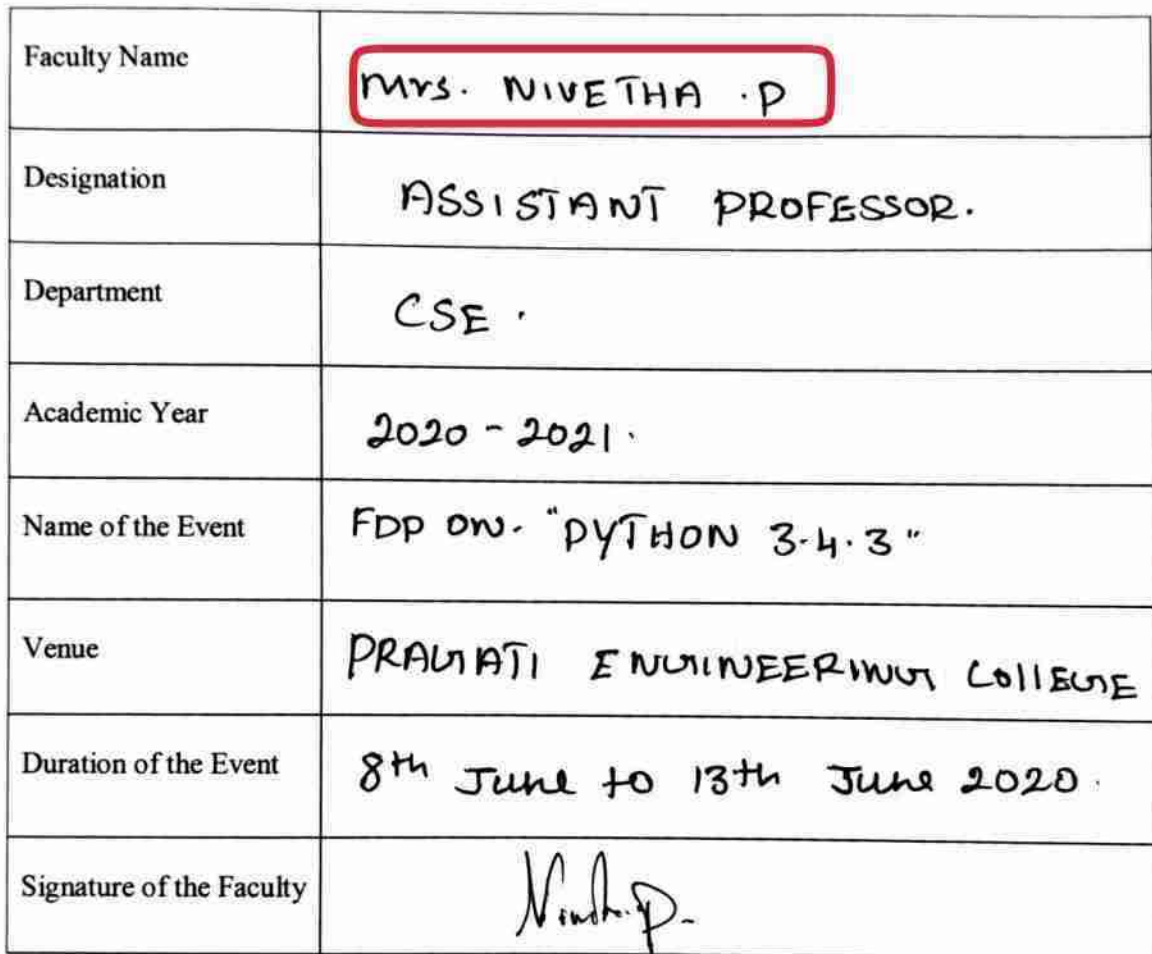 Faculty Name
Mrs. NIVETHA .P
Designation
ASSISTANT PROFESSOR.
Department
CSE .
Academic Year
2020 - 2021.
Name of the Event
FDP ON. "PYTHON 3.4.3"
Venue
PRAGATI ENGINEERING COllEGE
Duration of the Event
8th June to 13th June 2020.
Signature of the Faculty